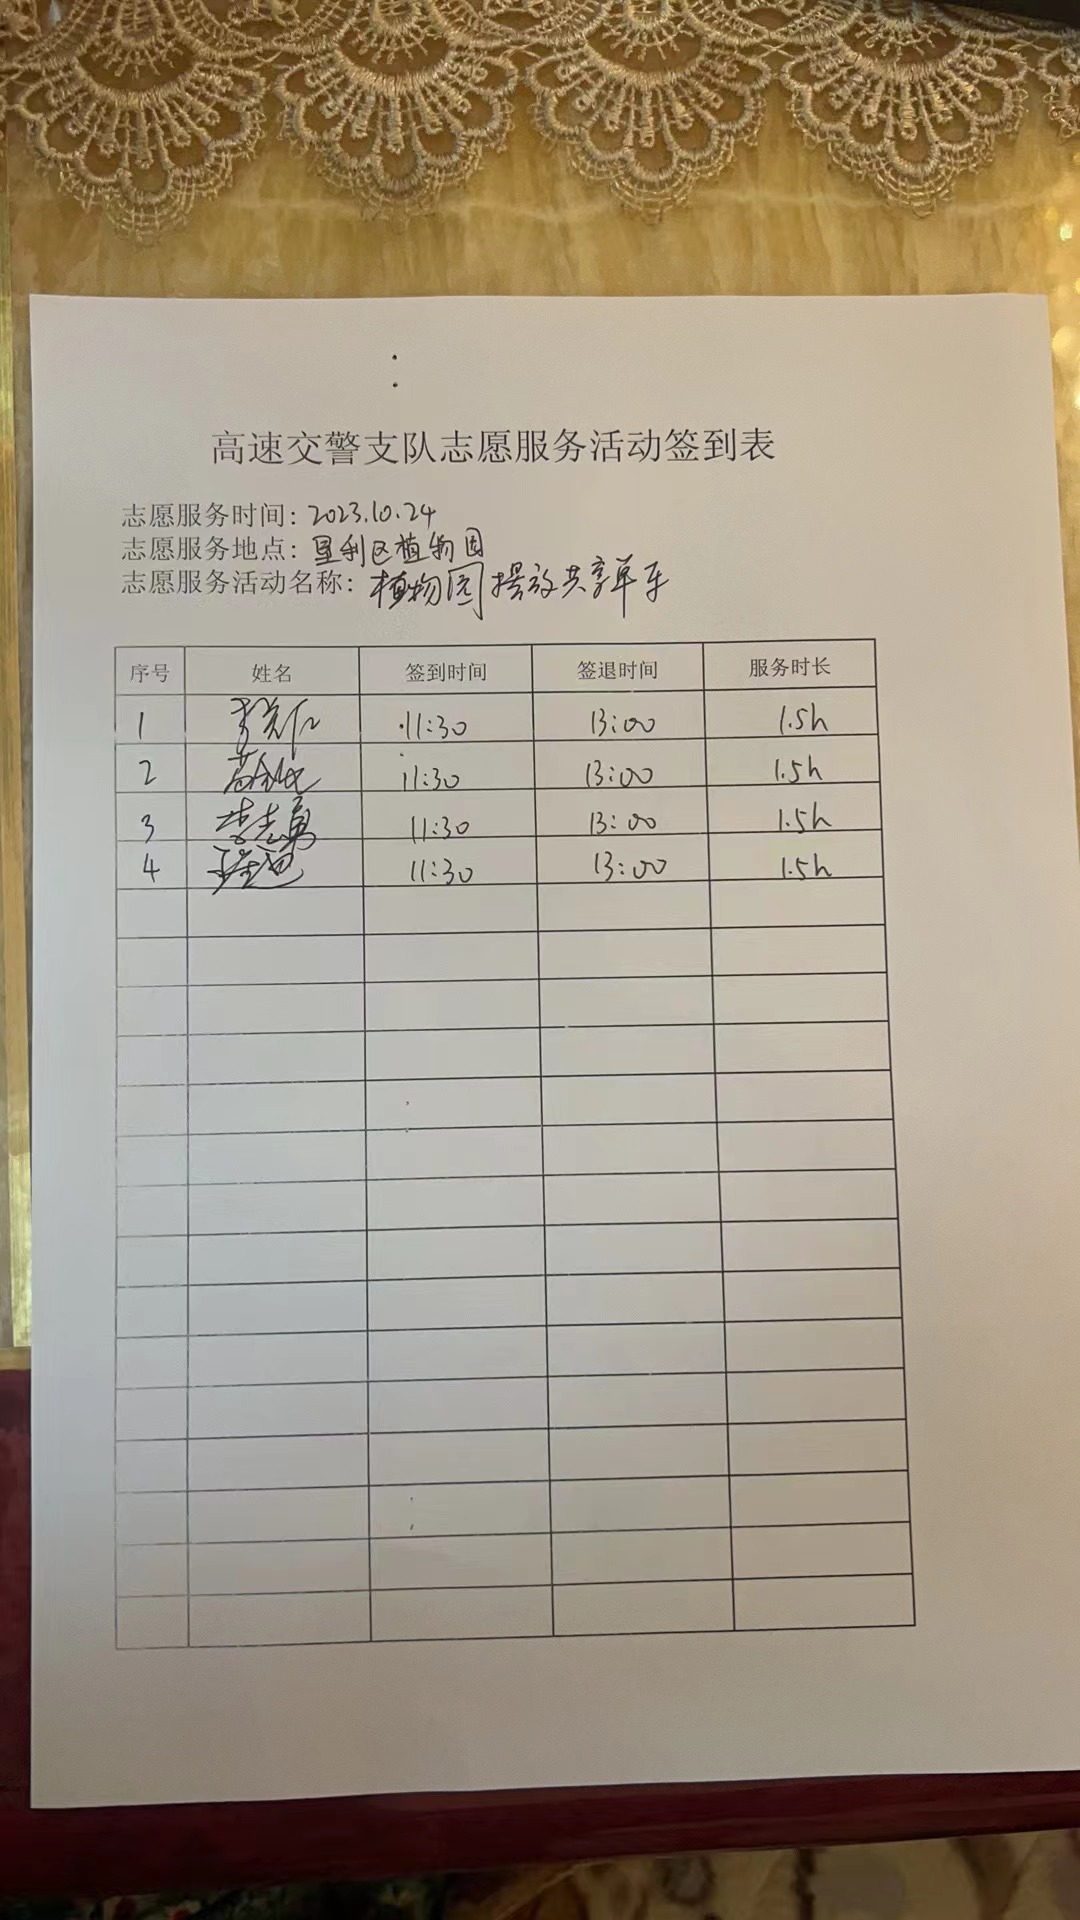 高速交警支队志愿服务活动签到表
志愿服务时间: 2023.10.24
志愿服务地点: 垦利区植物园
志愿服务活动名称: 植物园摆放共享单车
序号 姓名 签到时间 签退时间 服务时长
1 11:30 13:00 1.5h
2 11:30 13:00 1.5h
3 李志勇 11:30 13:00 1.5h
4 11:30 13:00 1.5h